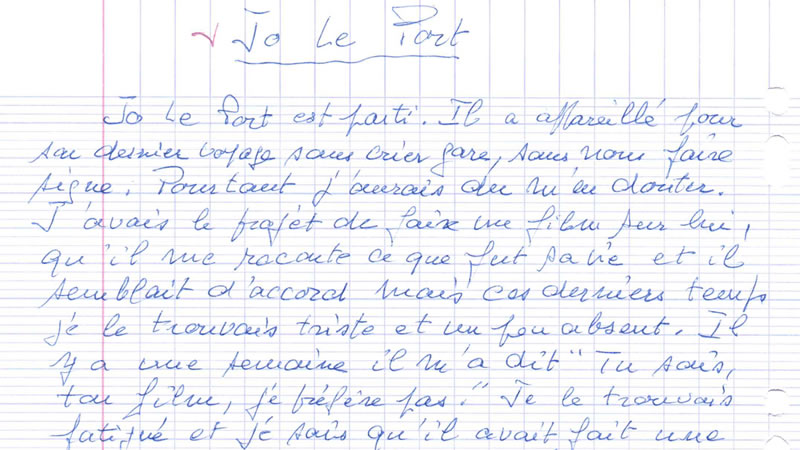 Jo Le Port
Jo Le Port est parti. Il a appareillé pour
son dernier voyage sans crier gare, sans nous faire
signe. Pourtant j'aurais dû m'en douter.
J'avais le projet de faire un film sur lui,
qu'il me raconte ce que fut sa vie et il
semblait d'accord mais ces derniers temps
je le trouvais triste et un peu absent. Il
y a une semaine il m'a dit "Tu sais,
ton film, je préfère pas." Je le trouvais
fatigué et je sais qu'il avait fait une